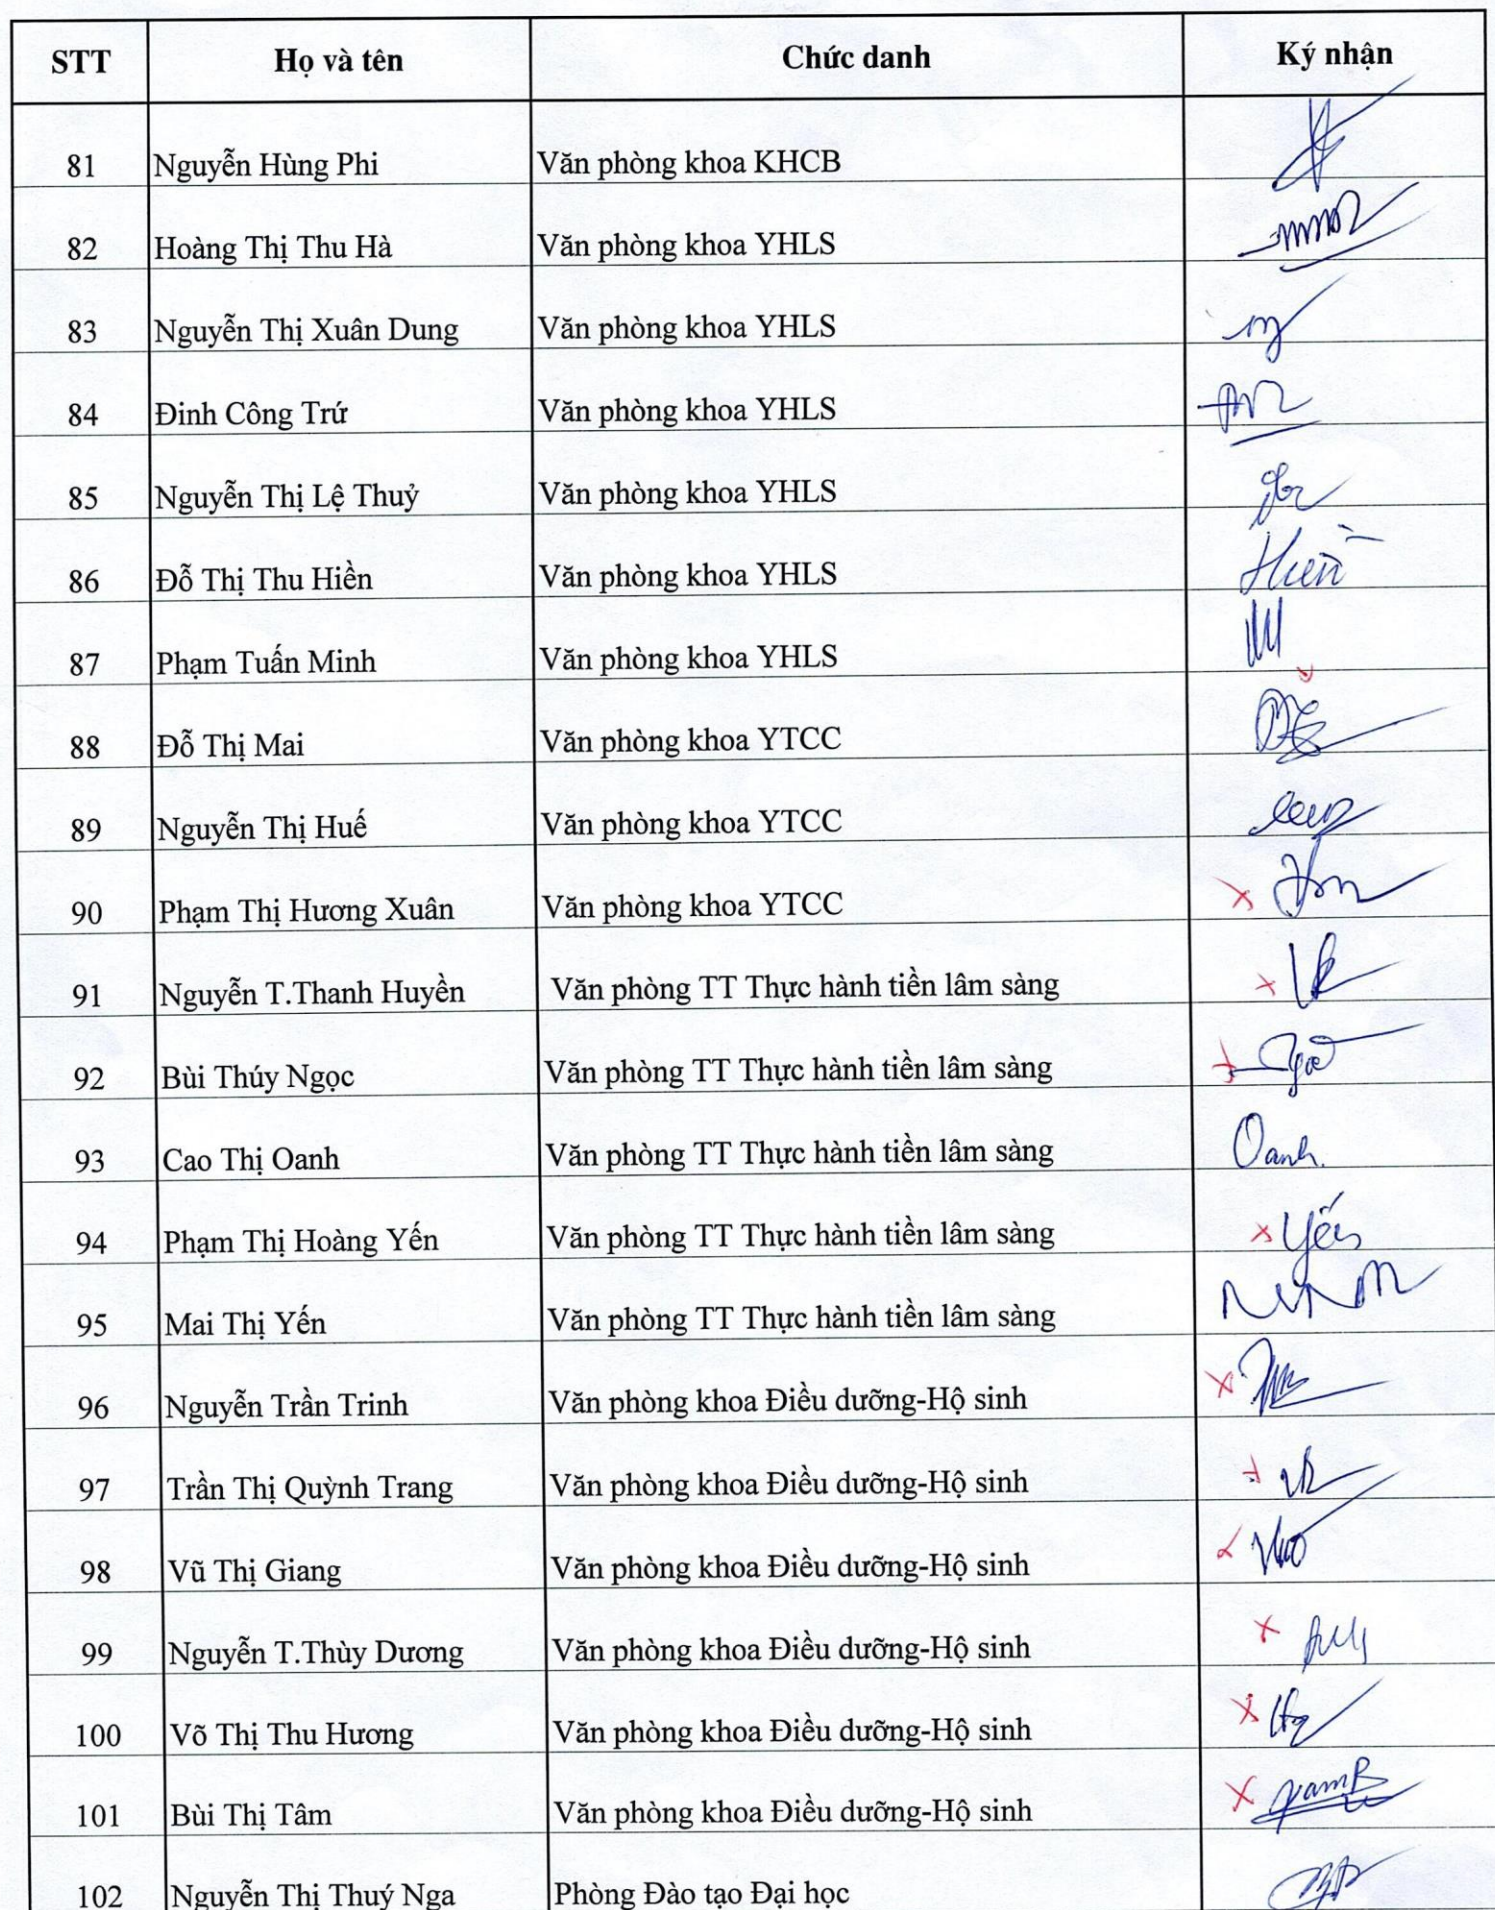 STT Họ và tên Chức danh Ký nhận
81 Nguyễn Hùng Phi Văn phòng khoa KHCB
82 Hoàng Thị Thu Hà Văn phòng khoa YHLS
83 Nguyễn Thị Xuân Dung Văn phòng khoa YHLS
84 Đinh Công Trứ Văn phòng khoa YHLS
85 Nguyễn Thị Lệ Thuỷ Văn phòng khoa YHLS
86 Đỗ Thị Thu Hiền Văn phòng khoa YHLS Hiền
87 Phạm Tuấn Minh Văn phòng khoa YHLS
88 Đỗ Thị Mai Văn phòng khoa YTCC
89 Nguyễn Thị Huế Văn phòng khoa YTCC
90 Phạm Thị Hương Xuân Văn phòng khoa YTCC
91 Nguyễn T.Thanh Huyền Văn phòng TT Thực hành tiền lâm sàng
92 Bùi Thúy Ngọc Văn phòng TT Thực hành tiền lâm sàng
93 Cao Thị Oanh Văn phòng TT Thực hành tiền lâm sàng Oanh.
94 Phạm Thị Hoàng Yến Văn phòng TT Thực hành tiền lâm sàng Yến
95 Mai Thị Yến Văn phòng TT Thực hành tiền lâm sàng
96 Nguyễn Trần Trinh Văn phòng khoa Điều dưỡng-Hộ sinh
97 Trần Thị Quỳnh Trang Văn phòng khoa Điều dưỡng-Hộ sinh
98 Vũ Thị Giang Văn phòng khoa Điều dưỡng-Hộ sinh
99 Nguyễn T.Thùy Dương Văn phòng khoa Điều dưỡng-Hộ sinh
100 Võ Thị Thu Hương Văn phòng khoa Điều dưỡng-Hộ sinh
101 Bùi Thị Tâm Văn phòng khoa Điều dưỡng-Hộ sinh
102 Nguyễn Thị Thuý Nga Phòng Đào tạo Đại học